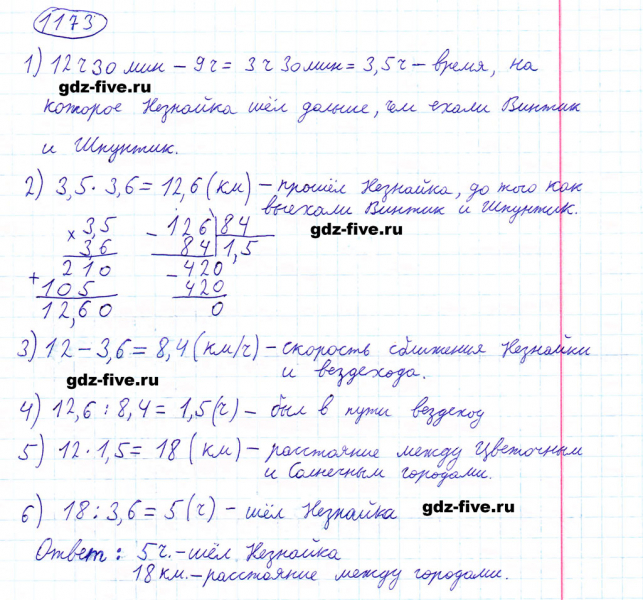 1173
1) 12 ч 30 мин – 9 ч = 3 ч 30 мин = 3,5 ч – время, на
gdz-five.ru
которое Незнайка шёл дальше, чем ехали Винтик
и Шпунтик.
2) 3,5 · 3,6 = 12,6 (км) – прошёл Незнайка, до того как
выехали Винтик и Шпунтик.
gdz-five.ru
× 3,5
3,6
+ 210
105
12,60
– 126 | 84
84 | 1,5
– 420
420
0
3) 12 – 3,6 = 8,4 (км/ч) – скорость сближения Незнайки
и вездехода.
gdz-five.ru
4) 12,6 : 8,4 = 1,5 (ч) – был в пути вездеход
5) 12 · 1,5 = 18 (км) – расстояние между Цветочным
и Солнечным городами.
6) 18 : 3,6 = 5 (ч) – шёл Незнайка
gdz-five.ru
Ответ: 5 ч. – шёл Незнайка
18 км. – расстояние между городами.